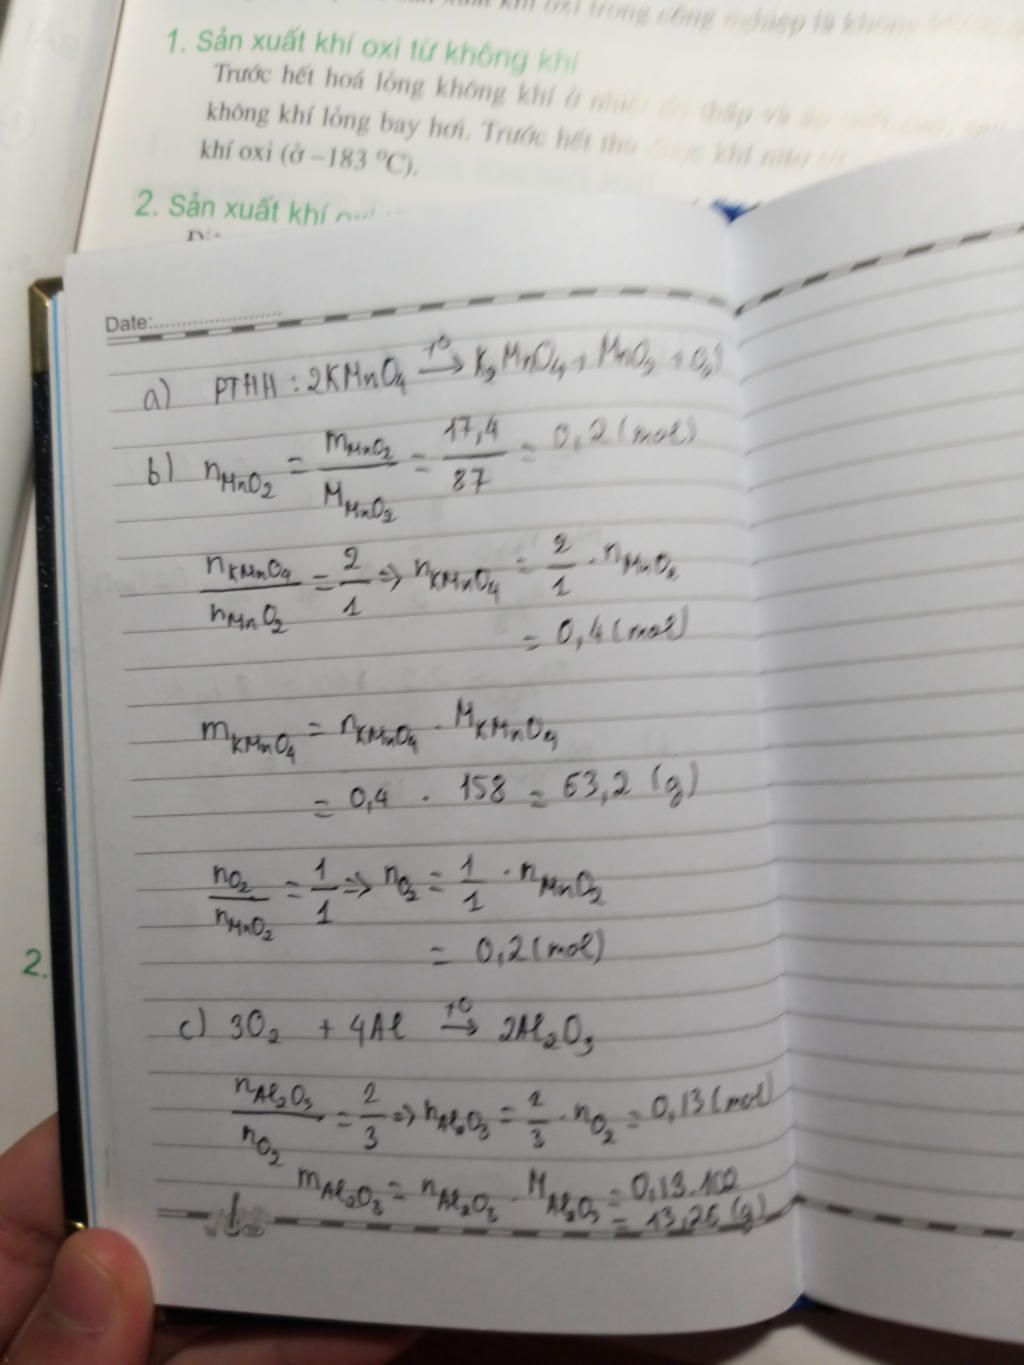 khí oxi trong công nghiệp là không
1. Sản xuất khí oxi từ không khí
Trước hết hoá lỏng không khí ở nhiệt độ thấp và áp
không khí lỏng bay hơi. Trước hết thu được khí nitơ
khí oxi (ở –183 °C).
2. Sản xuất khí
Date:
a) PTHH : 2KMnO4 →(t°) K2MnO4 + MnO2 + O2↑
b) nMnO2 = mMnO2 / MMnO2 = 17,4 / 87 = 0,2 (mol)
nKMnO4 / nMnO2 = 2/1 => nKMnO4 = 2/1 . nMnO2
= 0,4 (mol)
mKMnO4 = nKMnO4 . MKMnO4
= 0,4 . 158 = 63,2 (g)
nO2 / nMnO2 = 1/1 => nO2 = 1/1 . nMnO2
= 0,2 (mol)
c) 3O2 + 4Al →(t°) 2Al2O3
nAl2O3 / nO2 = 2/3 => nAl2O3 = 2/3 . nO2 = 0,13 (mol)
mAl2O3 = nAl2O3 . MAl2O3 = 0,13.102
= 13,26 (g)
2.